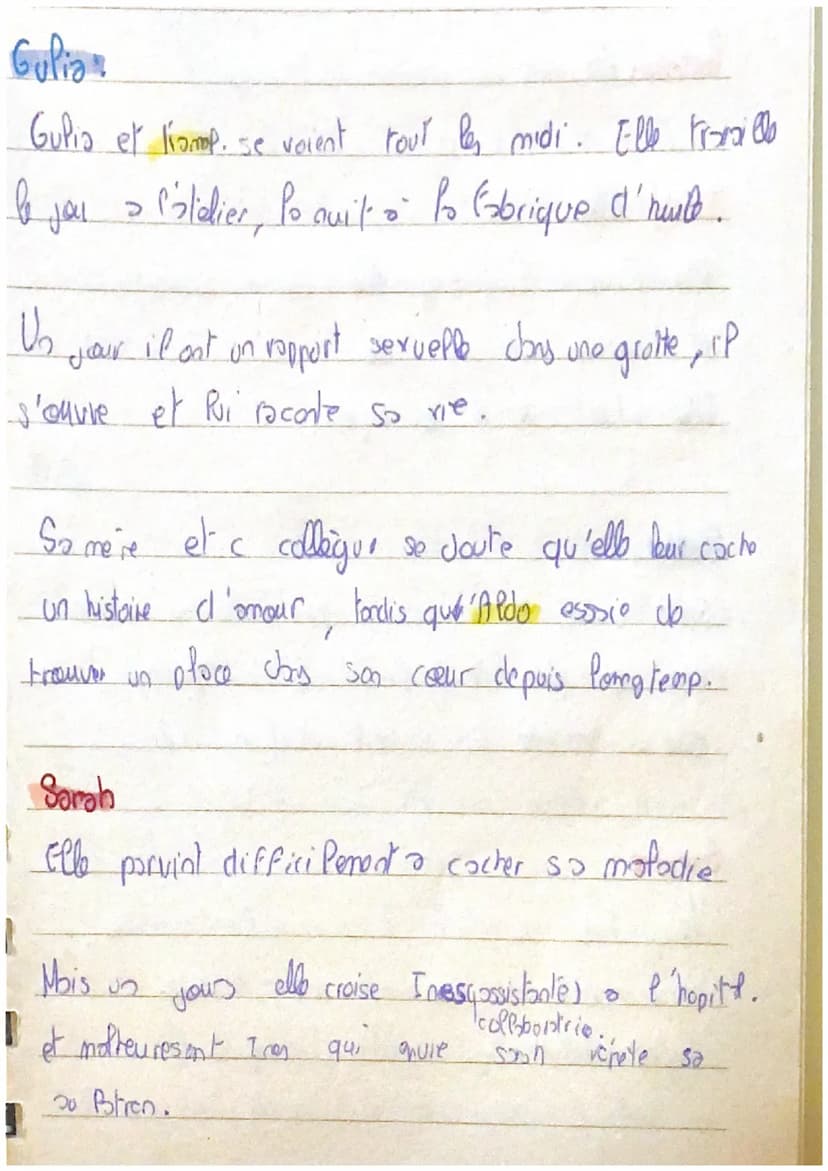 Gulia :
Gulia et Kamal. se voient tout les midi. Elle travaille
le jou à l'atelier, la nuit à la fabrique d'huile.
Un jour il ont un rapport sexuelle dans une grotte, il
s'ouvre et lui raconte sa vie.
Sa mère et c collègue se doute qu'elle leur cache
un histoire d'amour, tandis que 'Aldo essaie de
trouver un place dans son cœur depuis longtemp.
Sarah
Elle parvint difficilement a cacher sa maladie
Mais un jours elle croise Ines(assistante) a l'hopitl.
collaboratrie.
et malheuresent Ines qui sa
au Patron.